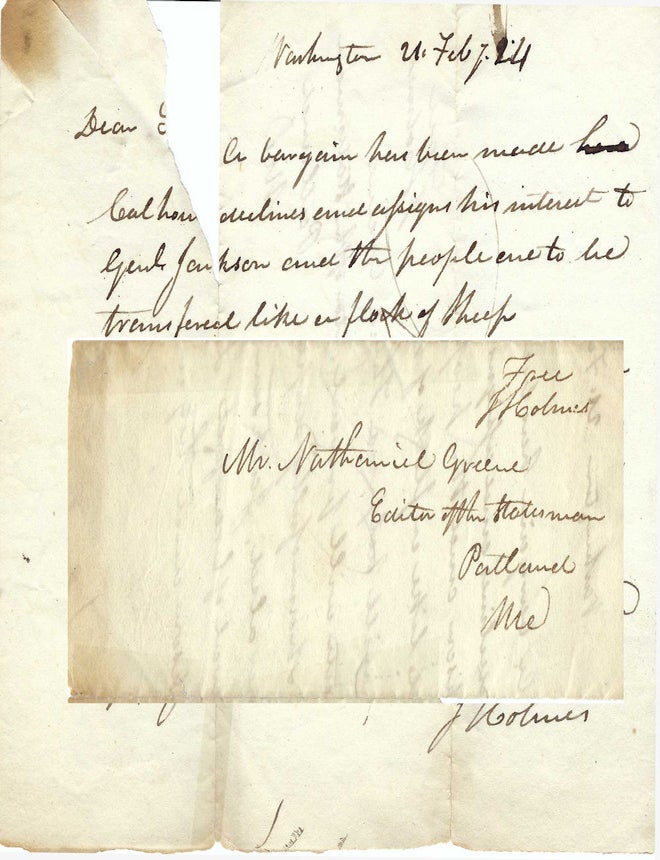 Washington 21. Feby. 24
Dear
A bargain has been made
Calhoun declines and assigns his interest to
Genl. Jackson and the people are to be
transfered like a flock of sheep
Free
J Holmes
Mr. Nathaniel Greene
Editor of the Statesman
Portland
Me
J Holmes